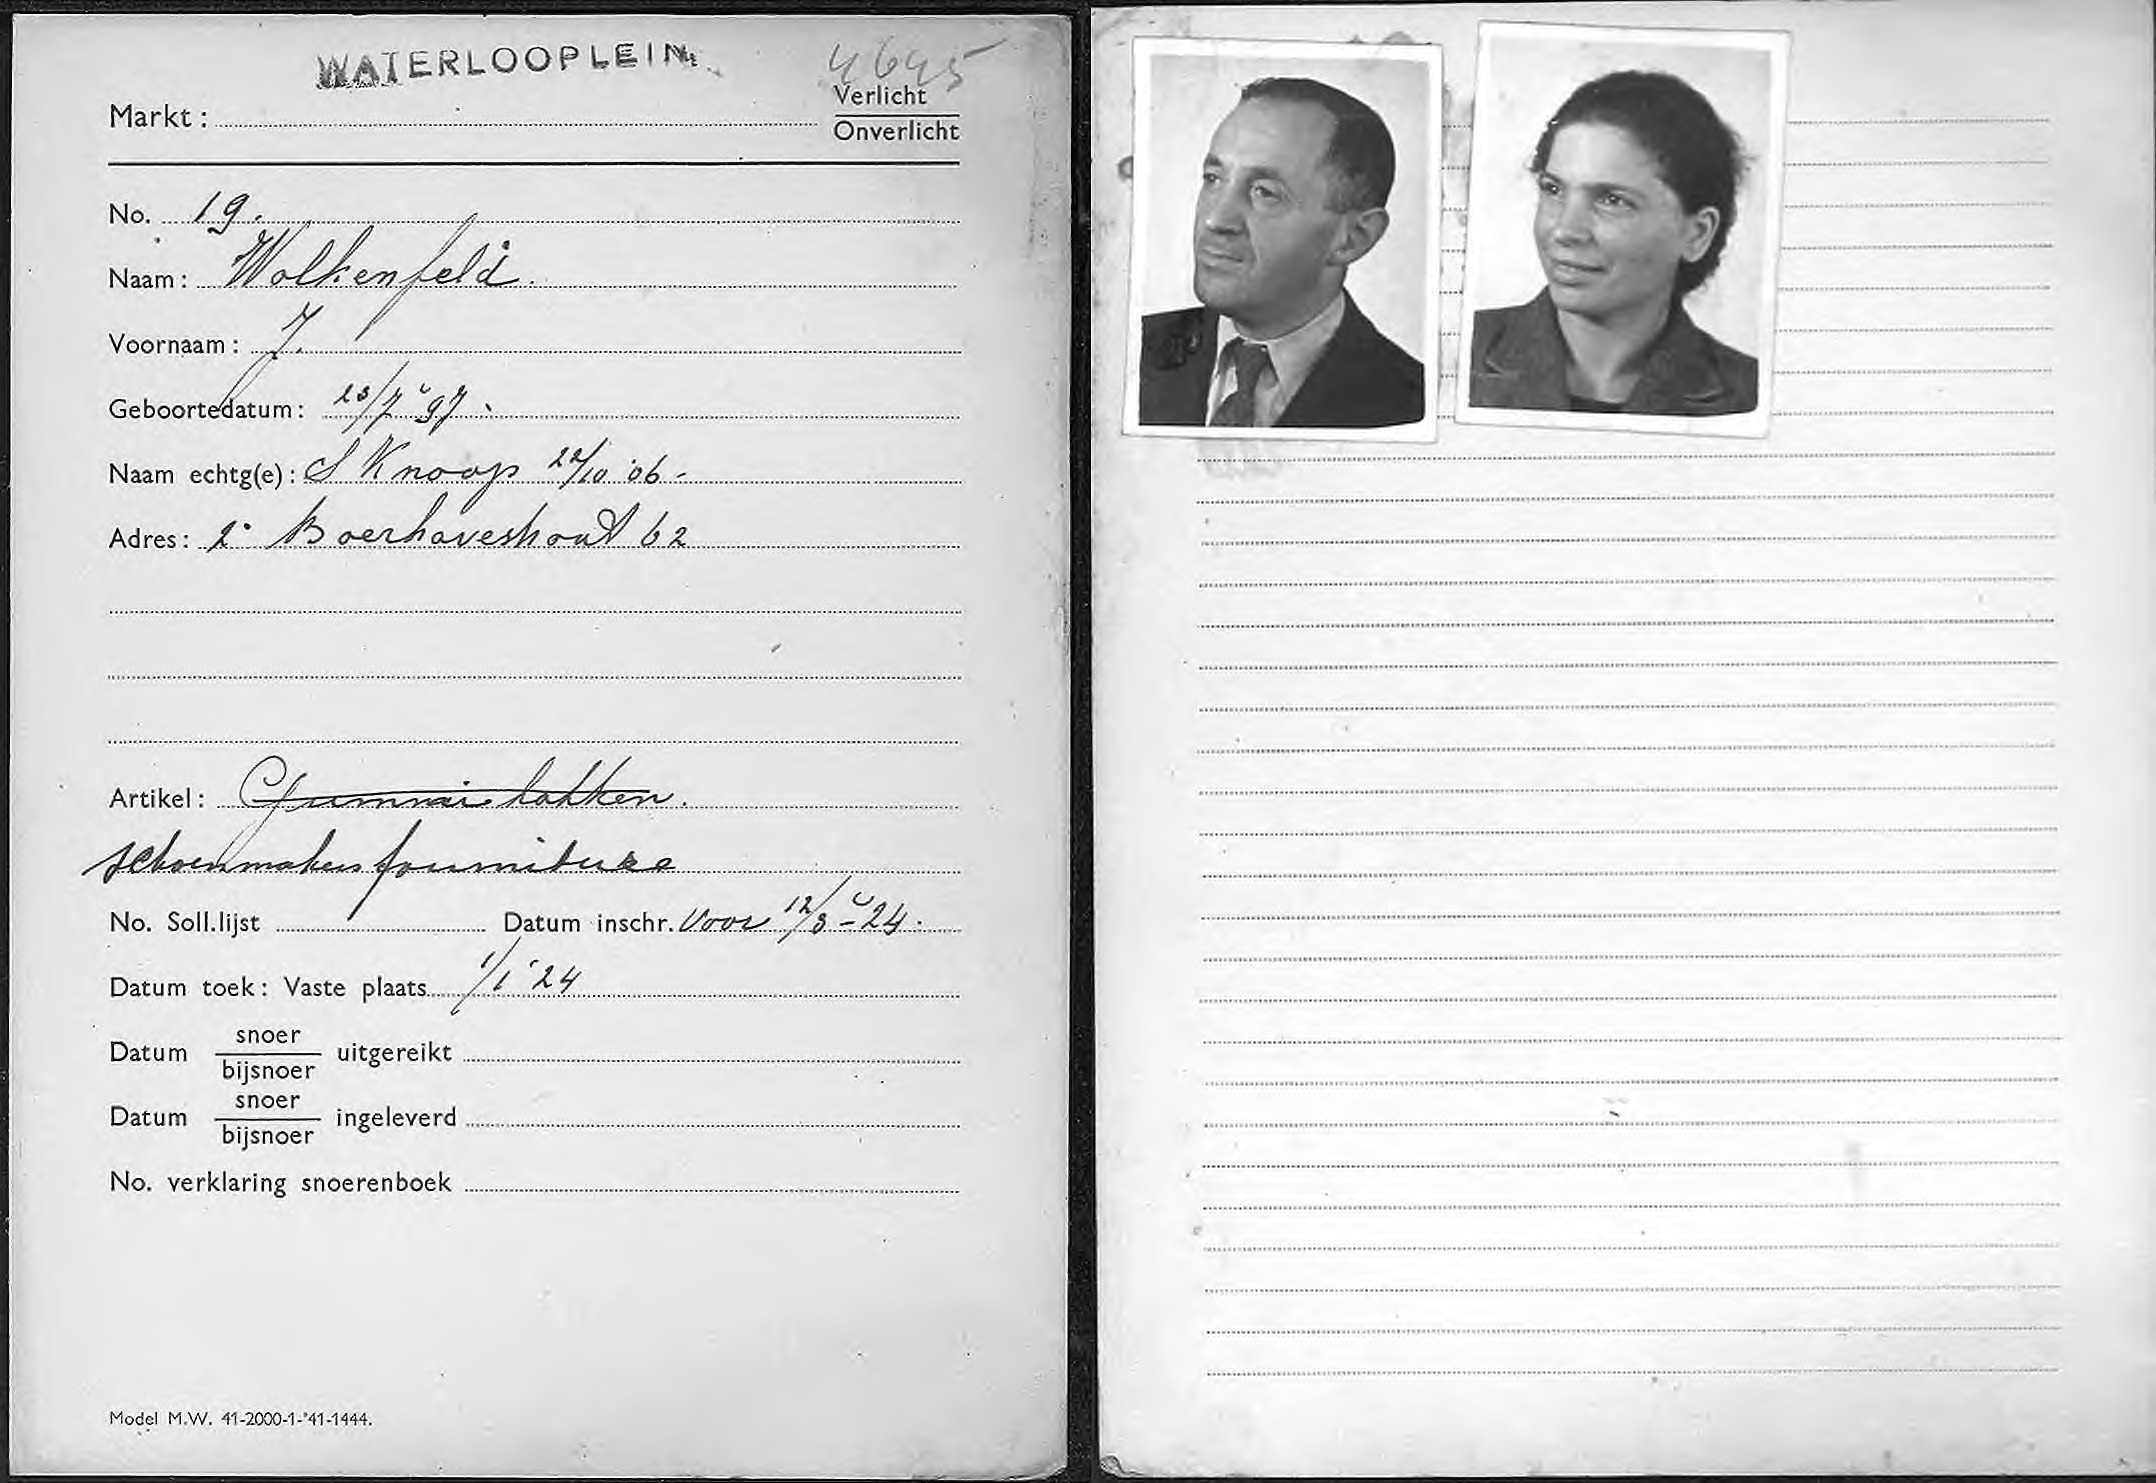 WATERLOOPLEIN.
4645
Markt :
Verlicht
Onverlicht
No. 19.
Naam : Wolkenfeld.
Voornaam : J.
Geboortedatum : 23/7 '97.
Naam echtg(e) : S Knoop 22/10 '06 -
Adres : 2e Boerhavestraat 62
Artikel : Gummi hakken.
schoenmakers fournituren
No. Soll.lijst Datum inschr. Voor 12/3 - 24.
Datum toek : Vaste plaats 1/1 '24
Datum snoer/bijsnoer uitgereikt
Datum snoer/bijsnoer ingeleverd
No. verklaring snoerenboek
Model M.W. 41-2000-1-'41-1444.